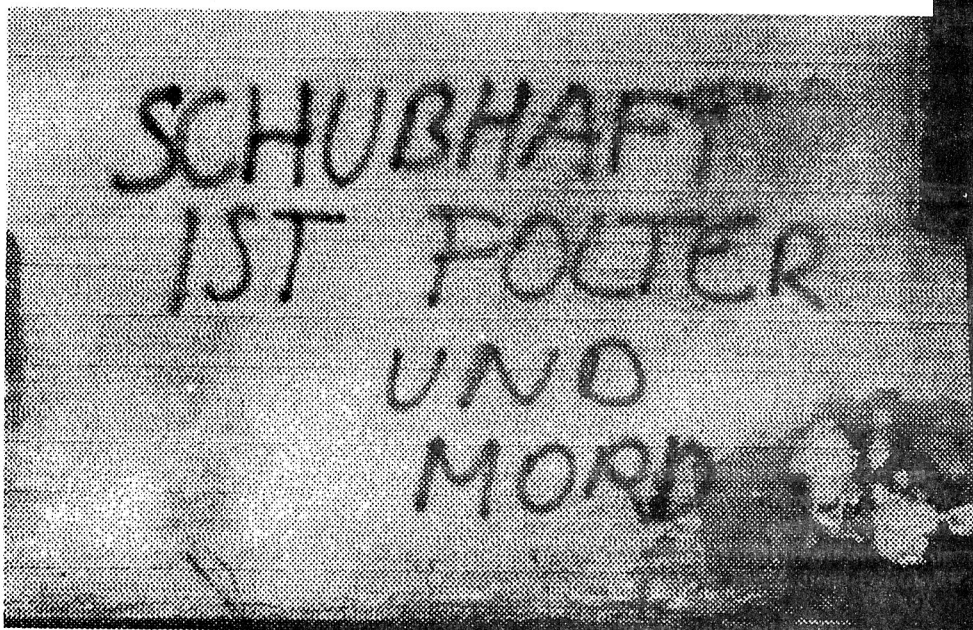 SCHUBHAFT
IST FOLTER
UND
MORD